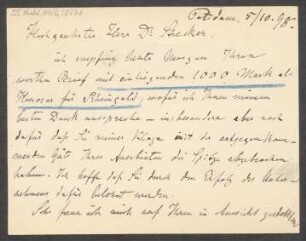 Potsdam, 5/10. 98.
Hochgeehrter Herr Dr. Strecker.
ich empfing heute Morgen Ihren
werten Brief mit einliegenden 1000 Mark als
Honorar für Rheingold, wofür ich Ihnen meinen
besten Dank ausspreche – insbesondere aber noch
dafür daß Sie meiner Klage mit so entgegenkom-
mender Güte Ihrer Ansichten die Spitze abgebrochen
haben. Ich hoffe daß Sie durch den Erfolg des Unter-
nehmens dafür belohnt werden.
Sehr freue ich mich auf Ihren in Aussicht gestellten